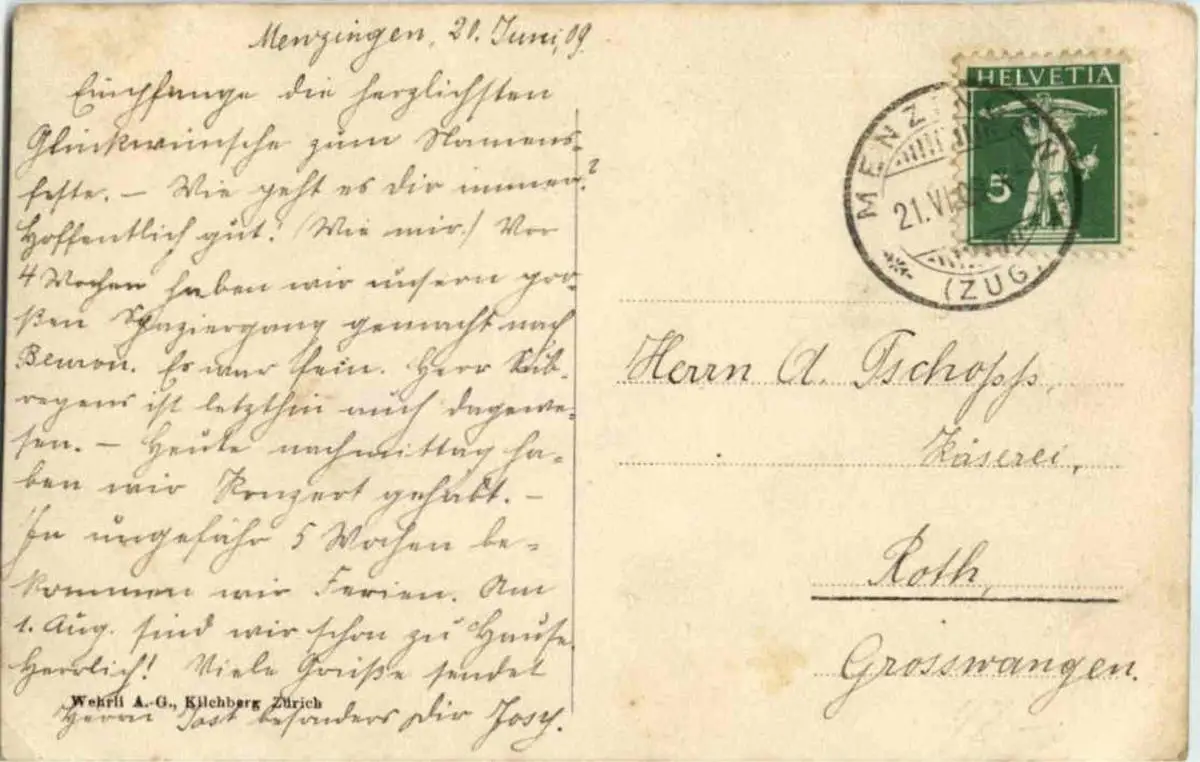 Menzingen, 20. Juni, 09
Empfange die herzlichsten
Glückwünsche zum Namens-
feste. – Wie geht es dir immer?
Hoffentlich gut! Wie mir! Vor
4 Wochen haben wir unsern gro-
ßen Spaziergang gemacht nach
Beuron. Es war fein. Herr Sub-
regens ist letzthin auch dagewe-
sen. – Heute nachmittag ha-
ben wir Konzert gehabt. –
In ungefähr 5 Wochen be-
kommen wir Ferien. Am
1. Aug. sind wir schon zu Hause.
Herrlich! Viele Grüße sendet
Wehrli A.-G., Kilchberg Zürich
Herrn Jost besonders Dir Josy.
HELVETIA
5
MENZINGEN
21.VI.09
(ZUG)
Herrn A. Tschopp,
Käserei,
Roth,
Grosswangen.